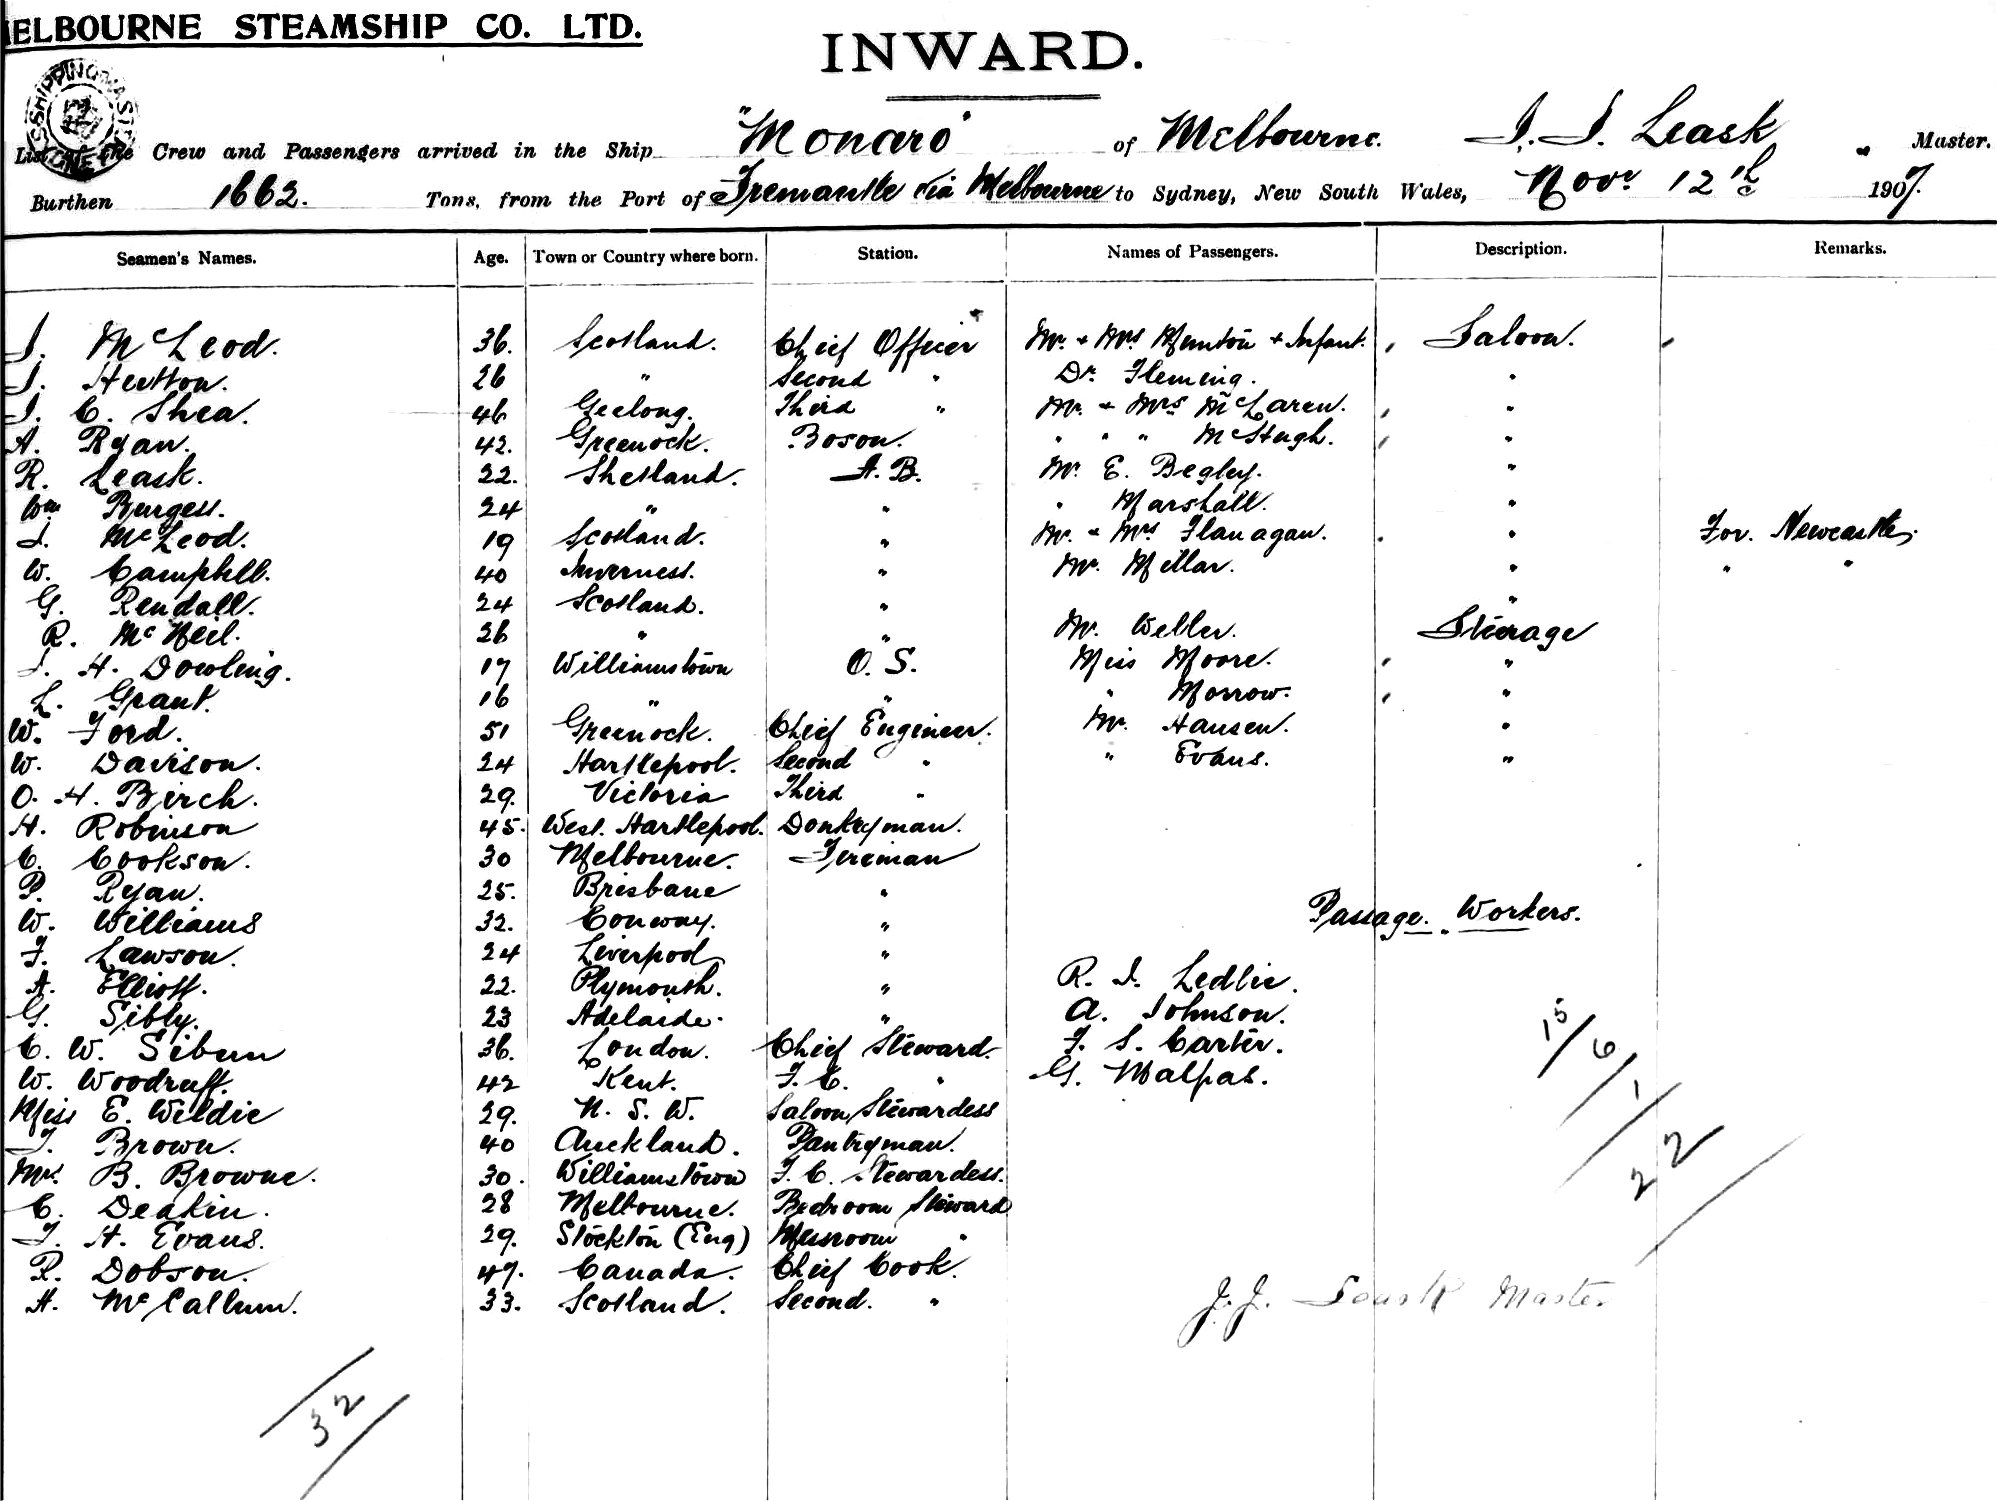 MELBOURNE STEAMSHIP CO. LTD.
INWARD.
SHIPPING MASTER
List of the Crew and Passengers arrived in the Ship "Monaro" of Melbourne. J. J. Leask Master.
Burthen 1662. Tons, from the Port of Fremantle via Melbourne to Sydney, New South Wales, Novr 12th 1907.
Seamen's Names. Age. Town or Country where born. Station. Names of Passengers. Description. Remarks.
J. McLeod. 36. Scotland. Chief Officer Mr. + Mrs Munton + Infant. Saloon.
J. Hutton. 26 " Second " Dr. Fleming. "
J. C. Shea. 46 Geelong. Third " Mr. + Mrs McLaren. "
A. Ryan. 42. Greenock. Boson. " " " McHugh. "
R. Leask. 22. Shetland. A.B. Mr. E. Begley. "
Wm Burgess. 24 " " " Marshall. "
J. McLeod. 19 Scotland. " Mr. + Mrs Flanagan. " For Newcastle.
W. Campbell. 40 Inverness. " Mr. Mellar. " " "
G. Rendall. 24 Scotland. " "
R. McNeil. 26 " " Mr. Weller. Steerage
J. H. Dowling. 17 Williamstown O. S. Miss Moore. "
L. Grant. 16 " " " Morrow. "
W. Ford. 51 Greenock. Chief Engineer. Mr. Hansen. "
W. Davison. 24 Hartlepool. Second " " Evans. "
O. H. Birch. 29. Victoria Third "
H. Robinson 45. West. Hartlepool. Donkeyman.
C. Cookson. 30 Melbourne. Fireman
P. Ryan. 25. Brisbane "
W. Williams 32. Conway. " Passage. Workers.
F. Lawson. 24 Liverpool "
A. Elliott. 22. Plymouth. " R. J. Ledlie.
G. Sibly. 23 Adelaide. " A. Johnson.
C. W. Sibun 36. London. Chief Steward. F. S. Carter.
W. Woodruff. 42 Kent. F. C. " G. Malpas.
Miss E. Weldie 29. N. S. W. Saloon Stewardess
J. Brown. 40 Auckland. Pantryman.
Mrs B. Browne. 30. Williamstown F. C. Stewardess.
C. Deakin. 28 Melbourne. Bedroom Steward
J. H. Evans. 29. Stockton (Eng) Messroom "
R. Dobson. 47. Canada. Chief Cook.
H. McCallum. 33. Scotland. Second. "
15/6/1/22
J. J. Leask Master
32